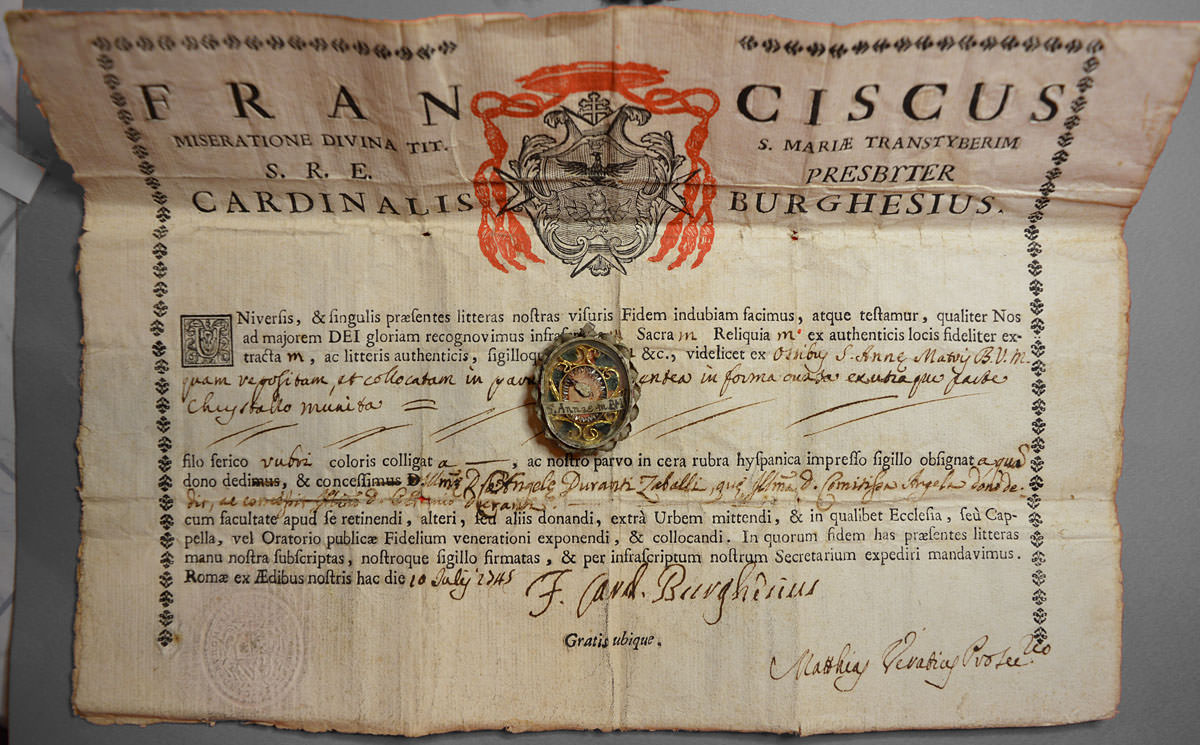 FRANCISCUS
MISERATIONE DIVINA TIT. S. MARIÆ TRANSTYBERIM
S. R. E. PRESBYTER
CARDINALIS BURGHESIUS.
UNiversis, & singulis præsentes litteras nostras visuris Fidem indubiam facimus, atque testamur, qualiter Nos
ad majorem DEI gloriam recognovimus Sacra m Reliquia m ex authenticis locis fideliter ex-
tracta m, ac litteris authenticis, &c., videlicet ex Ossibus S. Annę Matris B.V.M.
quam repositam, et collocatam in in forma ovata ex utraque parte
Chrystallo munita
S. Annae m BM
filo serico rubri coloris colligat a, ac nostro parvo in cera rubra hyspanica impresso sigillo obsignat a
dono dedimus, & concessimus D. Duranti D. Comitissa Angela dono de-
dit, ac concessit
cum facultate apud se retinendi, alteri, seu aliis donandi, extrà Urbem mittendi, & in qualibet Ecclesia, seù Cap-
pella, vel Oratorio publicæ Fidelium venerationi exponendi, & collocandi. In quorum fidem has præsentes litteras
manu nostra subscriptas, nostroque sigillo firmatas, & per infrascriptum nostrum Secretarium expediri mandavimus.
Romæ ex Ædibus nostris hac die 10 Julij 1745
F. Card. Burghesius
Gratis ubique.
Matthias